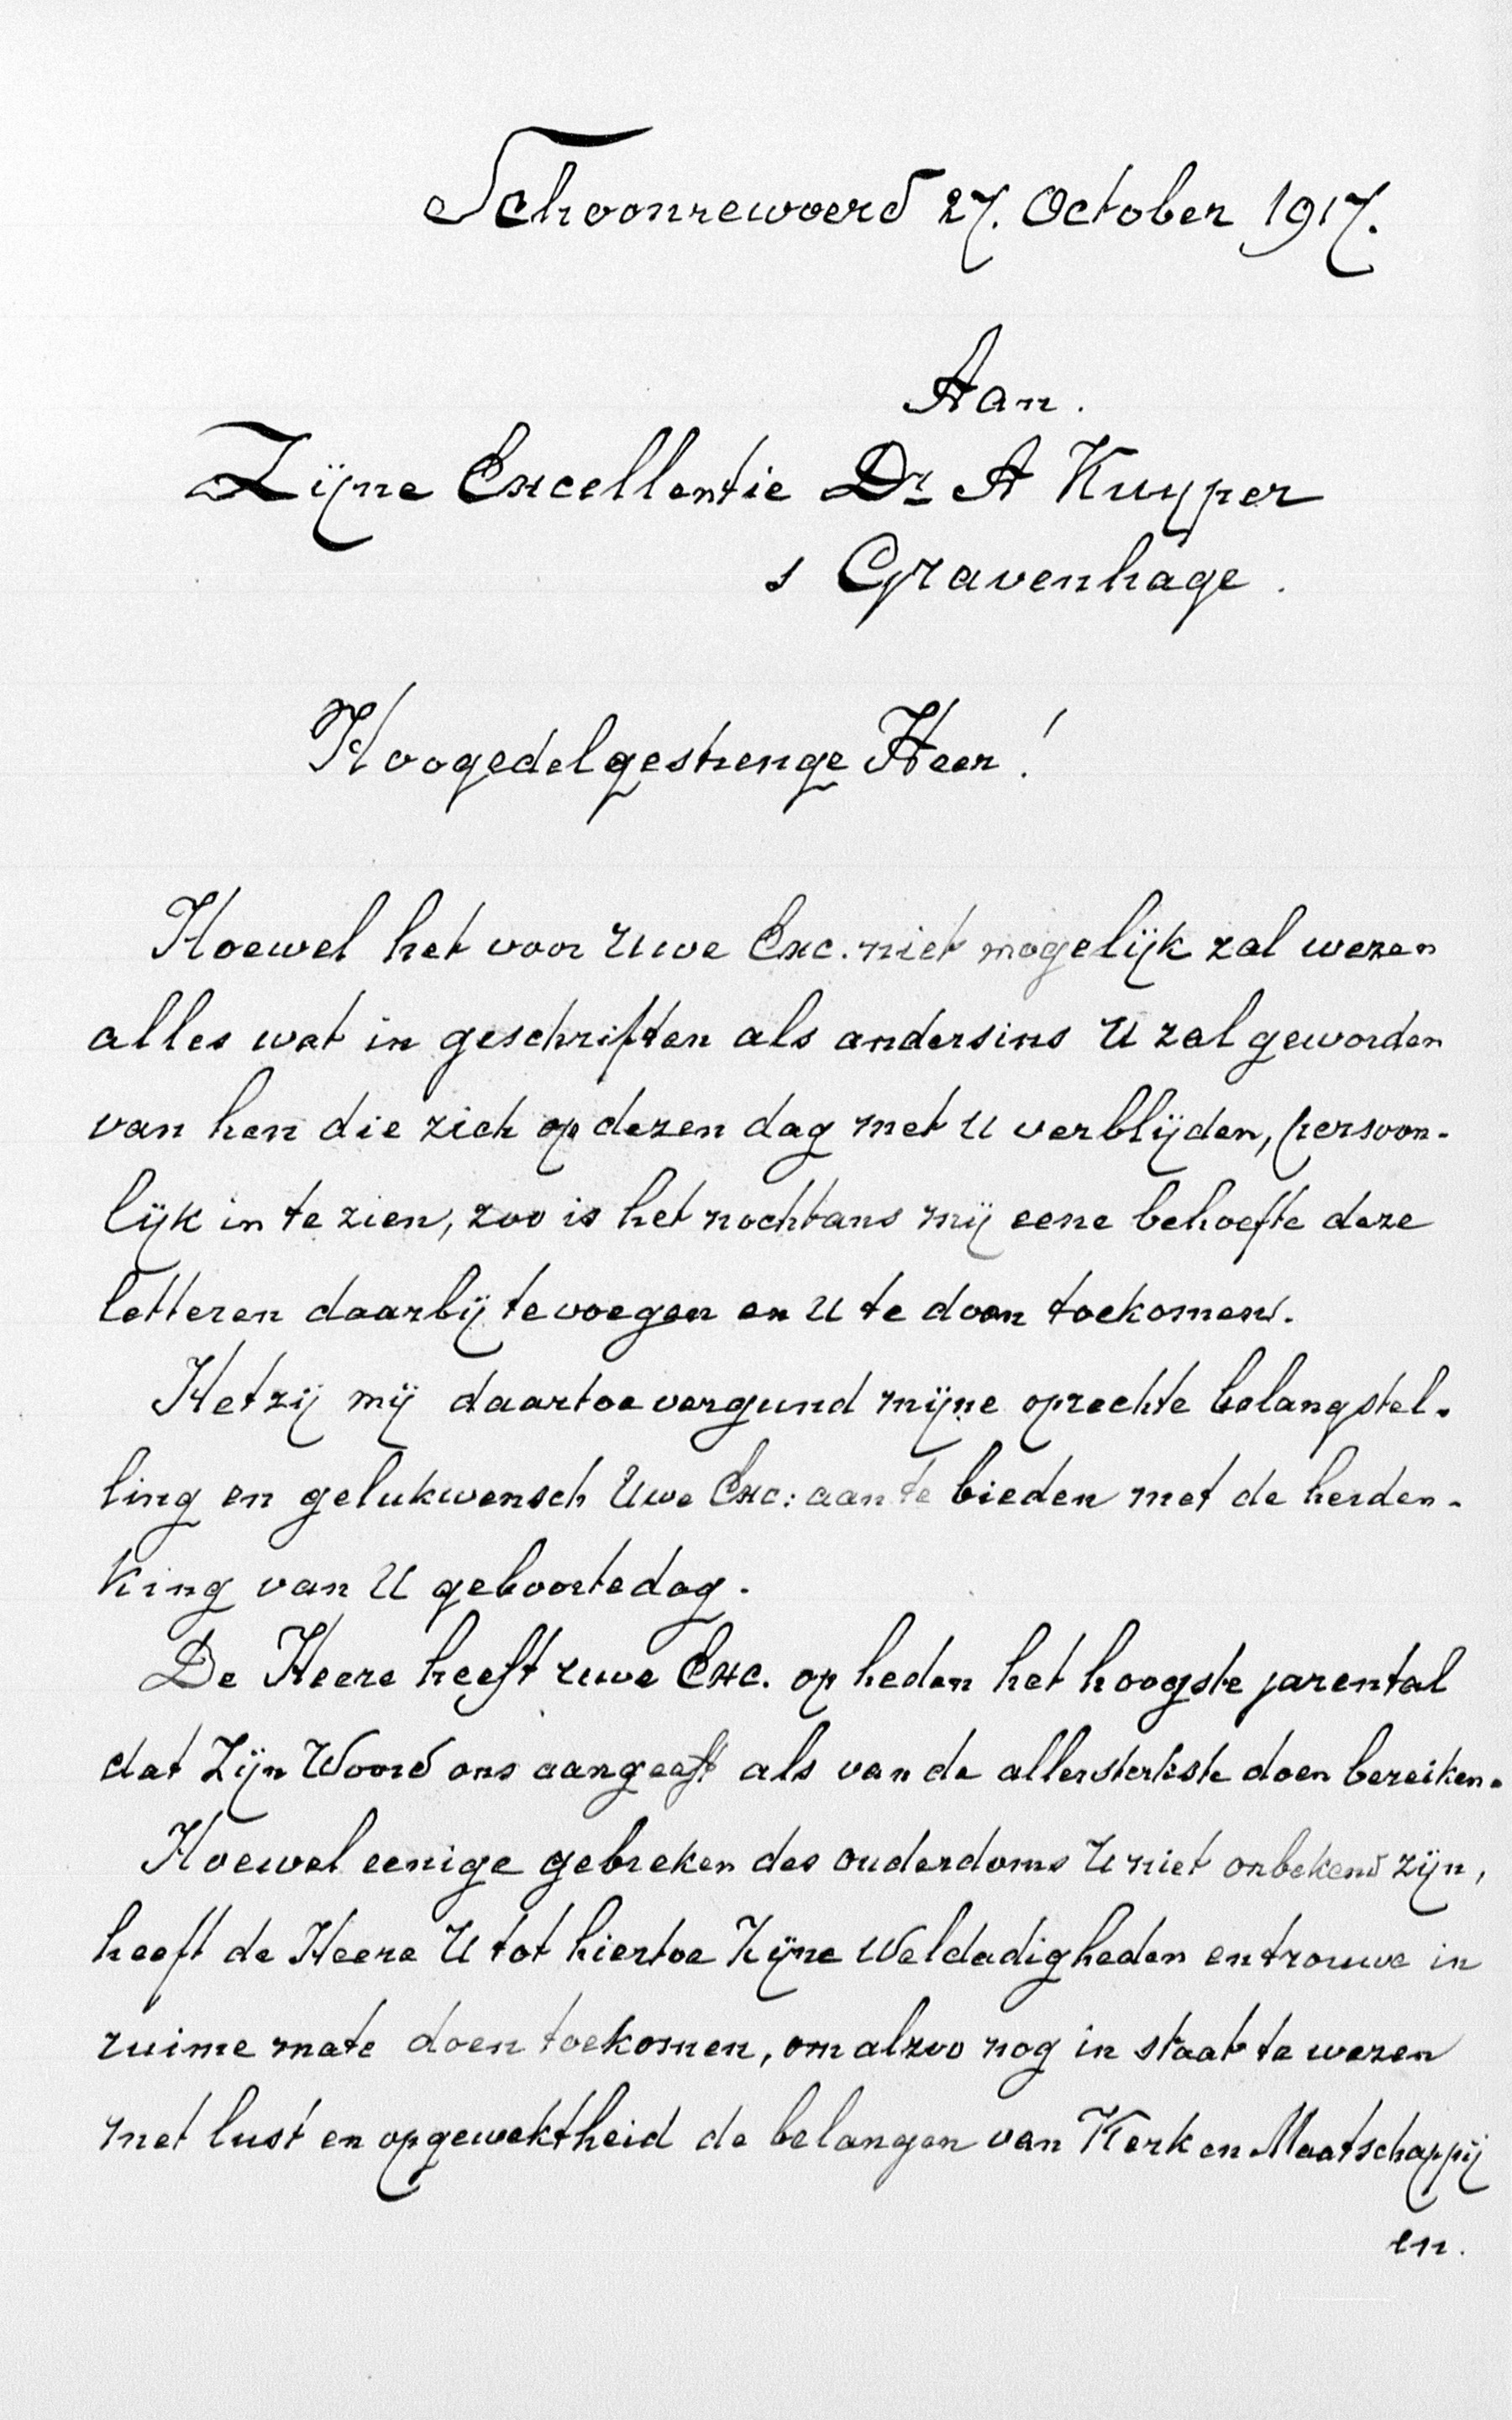 Schoonrewoerd 27. October 1917.
Aan.
Zijne Excellentie Dr A Kuyper
s Gravenhage.
Hoogedelgestrenge Heer!
Hoewel het voor Uwe Exc. niet mogelijk zal wezen
alles wat in geschriften als andersins U zal geworden
van hen die zich op dezen dag met U verblijden, persoon-
lijk in te zien, zoo is het nochtans mij eene behoefte deze
letteren daarbij te voegen en U te doen toekomen.
Het zij mij daartoe vergund mijne oprechte belangstel-
ling en gelukwensch Uwe Exc: aan te bieden met de herden-
king van U geboortedag.
De Heere heeft Uwe Exc. op heden het hoogste jarental
dat Zijn Woord ons aangeeft als van de allersterkste doen bereiken.
Hoewel eenige gebreken des ouderdoms U niet onbekend zijn,
heeft de Heere U tot hiertoe Zijne Weldadigheden en trouwe in
ruime mate doen toekomen, om alzoo nog in staat te wezen
met lust en opgewektheid de belangen van Kerk en Maatschappij
en.